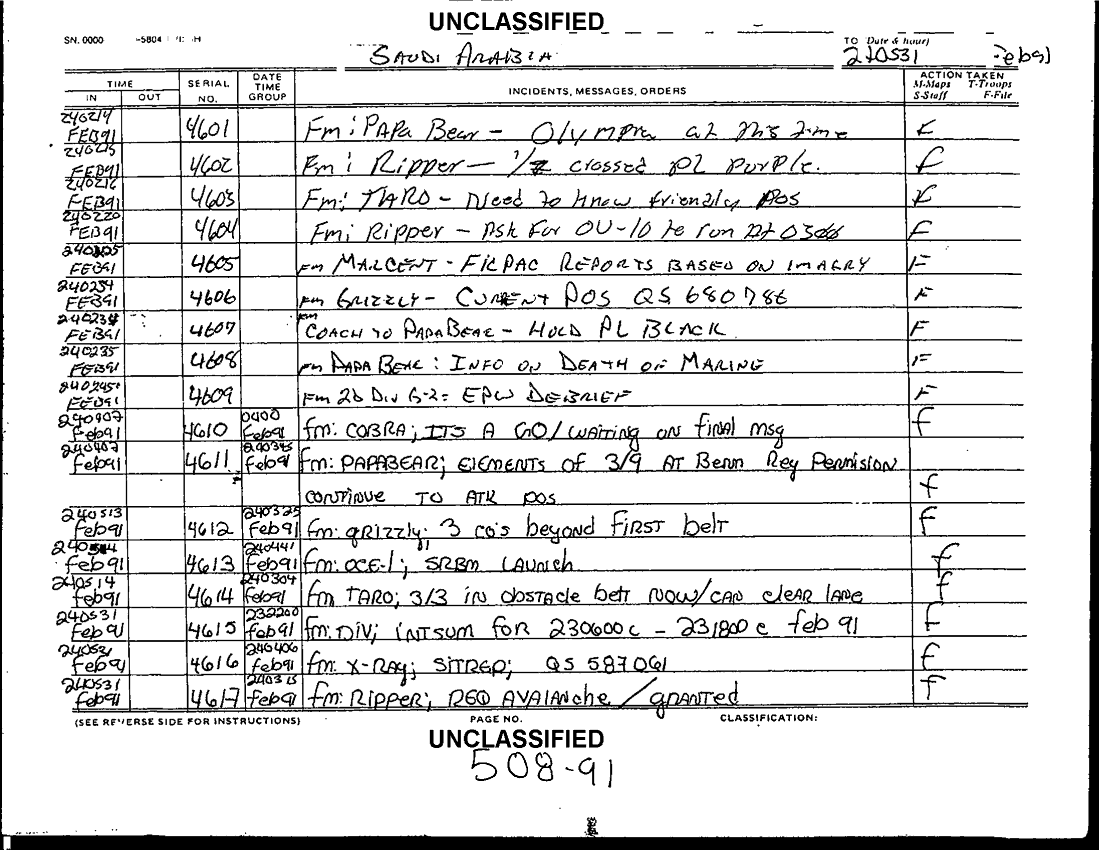 UNCLASSIFIED
SN. 0000 -5804
TO (Date & hour)
SAUDI ARABIA 240531 Feb91
TIME SERIAL NO. DATE TIME GROUP INCIDENTS, MESSAGES, ORDERS ACTION TAKEN
IN OUT M-Maps T-Troops
S-Staff F-File
240214
FEB91 4601 Fm: PAPA Bear - Olympia at this time F
FEB91 4602 Fm: Ripper - crossed pl purple. f
FEB91 4603 Fm: TARO - Need to know friendly pos F
240220
FEB91 4604 Fm: Ripper - Ask for OV-10 to run F
FEB91 4605 Fm MARCENT - FICPAC REPORTS BASED ON IMAGRY F
240234
FEB91 4606 Fm GRIZZLY - CURRENT POS QS 680786 F
FEB91 4607 fm COACH TO PAPABEAR - HOLD PL BLACK F
240235
FEB91 4608 fm PAPA BEAR: INFO ON DEATH OF MARINE F
FEB91 4609 Fm 2D DIV G-2: EPW DEBRIEF F
240407 0400
Feb91 4610 Feb91 fm: COBRA; ITS A GO/WAITING ON final msg f
240407 240345
Feb91 4611 Feb91 fm: PAPABEAR; elements of 3/9 AT Berm Req Permision
continue TO ATK pos f
240513 240325
Feb91 4612 Feb91 fm: grizzly; 3 co's beyond First belt f
240441
Feb91 4613 Feb91 fm: OCE-1; SRBM LAUNCH f
240514 240304
feb91 4614 Feb91 fm TARO; 3/3 in obstacle belt NOW/CAN clear lane f
240531 232200
Feb91 4615 feb91 fm: DIV; INTSUM for 230600c - 231800c feb 91 F
240531 240406
Feb91 4616 feb91 fm: X-Ray; SITREP; QS 587061 f
240531 240315
feb91 4617 Feb91 fm: Ripper; REQ AVAlANche/granted f
(SEE REVERSE SIDE FOR INSTRUCTIONS) PAGE NO. CLASSIFICATION:
UNCLASSIFIED
508-91